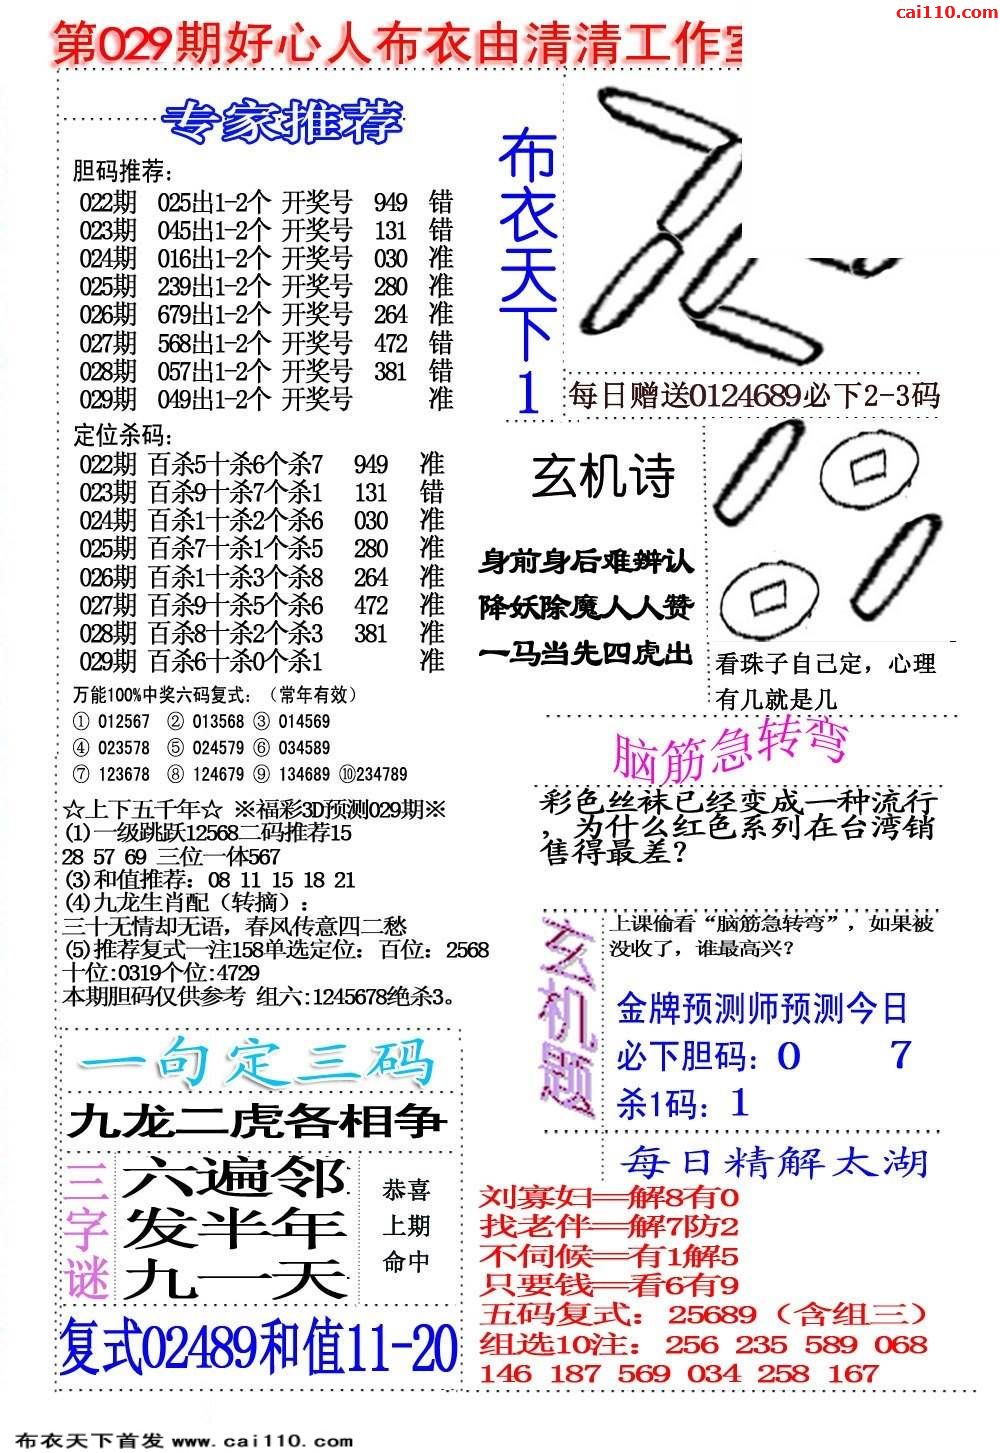 cai110.com
第029期好心人布衣由清清工作室
专家推荐
胆码推荐:
022期 025出1-2个 开奖号 949 错
023期 045出1-2个 开奖号 131 错
024期 016出1-2个 开奖号 030 准
025期 239出1-2个 开奖号 280 准
026期 679出1-2个 开奖号 264 准
027期 568出1-2个 开奖号 472 错
028期 057出1-2个 开奖号 381 错
029期 049出1-2个 开奖号 准
定位杀码:
022期 百杀5十杀6个杀7 949 准
023期 百杀9十杀7个杀1 131 错
024期 百杀1十杀2个杀6 030 准
025期 百杀7十杀1个杀5 280 准
026期 百杀1十杀3个杀8 264 准
027期 百杀9十杀5个杀6 472 准
028期 百杀8十杀2个杀3 381 准
029期 百杀6十杀0个杀1 准
万能100%中奖六码复式:（常年有效）
① 012567 ② 013568 ③ 014569
④ 023578 ⑤ 024579 ⑥ 034589
⑦ 123678 ⑧ 124679 ⑨ 134689 ⑩234789
☆上下五千年☆ ※福彩3D预测029期※
(1)一级跳跃12568二码推荐15
28 57 69 三位一体567
(3)和值推荐：08 11 15 18 21
(4)九龙生肖配（转摘）:
三十无情却无语，春风传意四二愁
(5)推荐复式一注158单选定位：百位：2568
十位:0319个位:4729
本期胆码仅供参考 组六:1245678绝杀3。
一句定三码
九龙二虎各相争
三字谜
六遍邻
发半年
九一天
恭喜
上期
命中
复式02489和值11-20
布衣天下1
每日赠送0124689必下2-3码
玄机诗
身前身后难辨认
降妖除魔人人赞
一马当先四虎出
看珠子自己定，心理
有几就是几
脑筋急转弯
彩色丝袜已经变成一种流行
，为什么红色系列在台湾销
售得最差?
玄机题
上课偷看“脑筋急转弯”，如果被
没收了，谁最高兴?
金牌预测师预测今日
必下胆码: 0 7
杀1码: 1
每日精解太湖
刘寡妇══解8有0
找老伴══解7防2
不伺候══有1解5
只要钱══看6有9
五码复式：25689（含组三）
组选10注：256 235 589 068
146 187 569 034 258 167
布衣天下首发 www.cai110.com